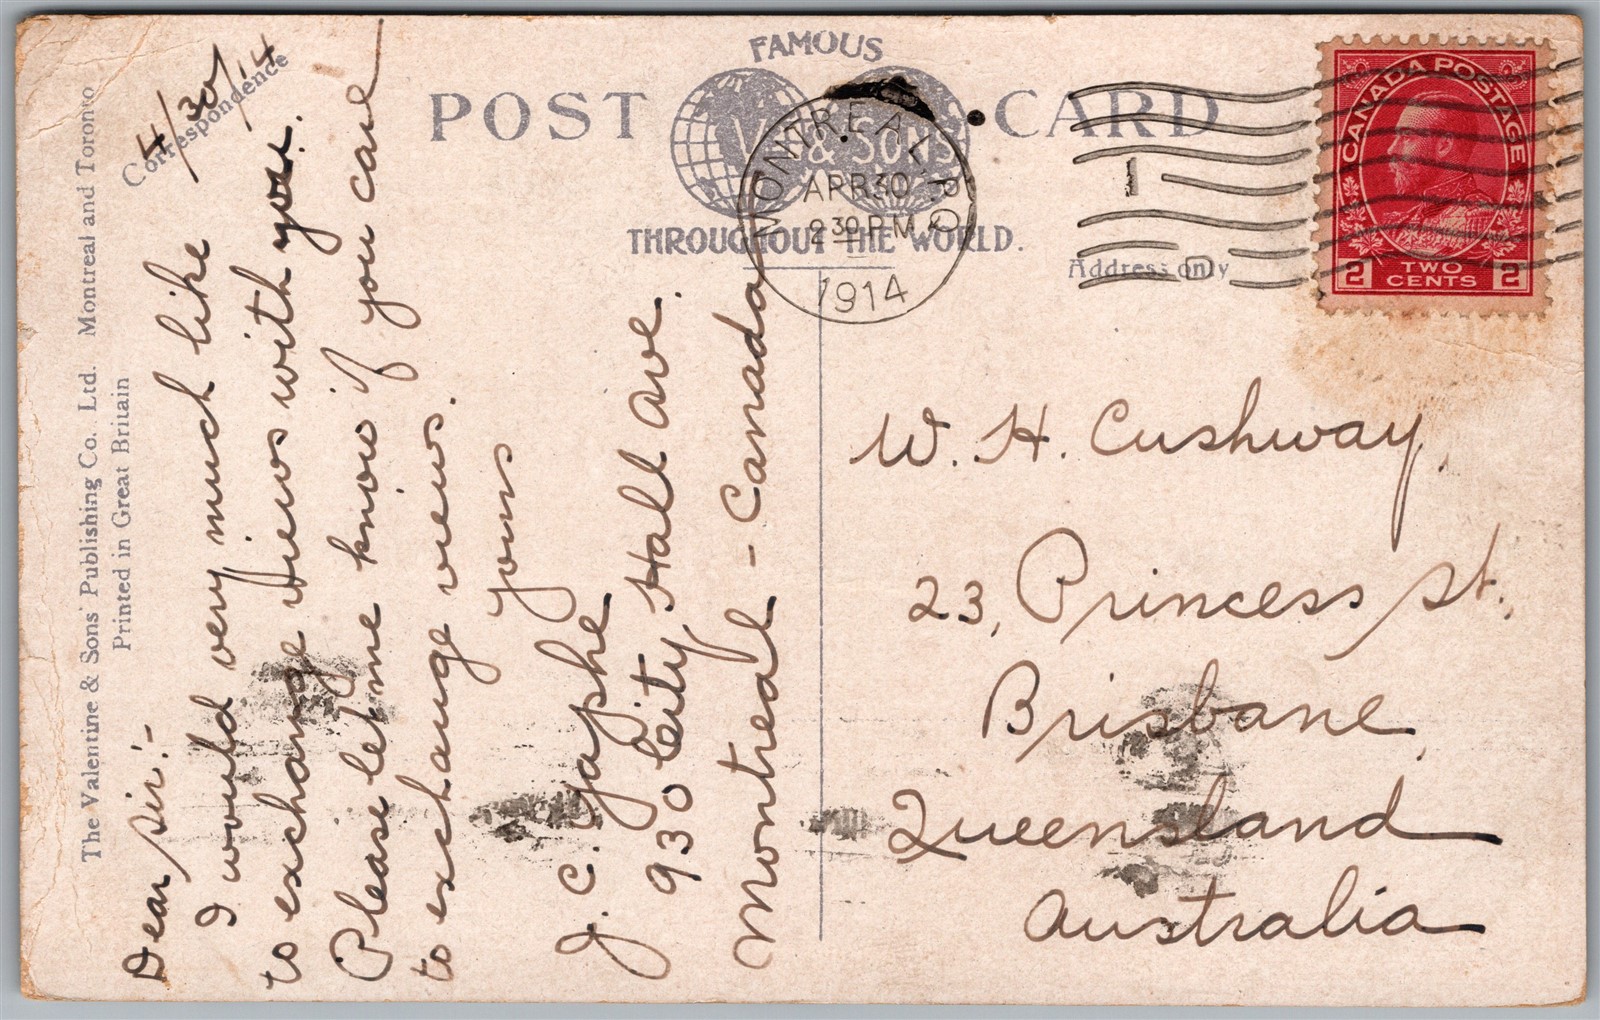 The Valentine & Sons' Publishing Co. Ltd. Montreal and Toronto
Printed in Great Britain
Correspondence
4/30/14
Dear Sir:-
I would very much like
to exchange views with you.
Please let me know if you care
to exchange views.
yours
J. C. Yaphe
930 City Hall Ave.
Montreal - Canada
POST CARD
FAMOUS
V. & SONS
THROUGHOUT THE WORLD.
MONTREAL, P.Q.
APR 30
2 30 P.M.
1914
1
D
Address only
CANADA POSTAGE
2 TWO CENTS 2
W. H. Cushway,
23, Princess St.,
Brisbane,
Queensland
Australia